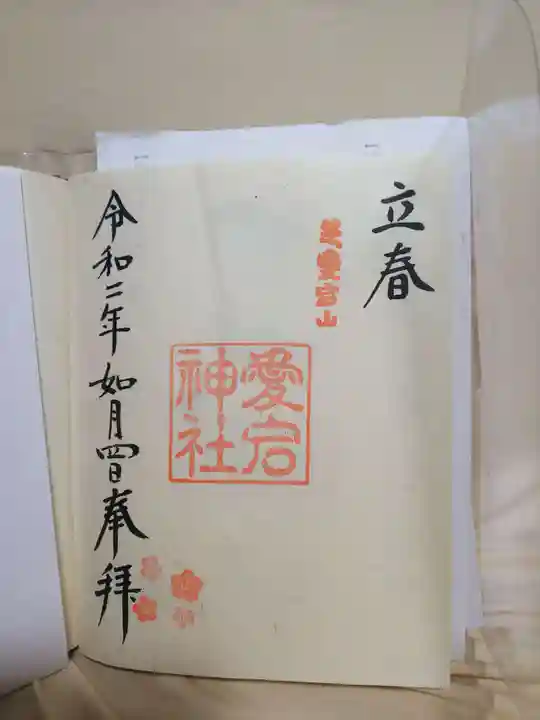 立春
芝愛宕山
愛宕
神社
令和二年如月四日奉拝